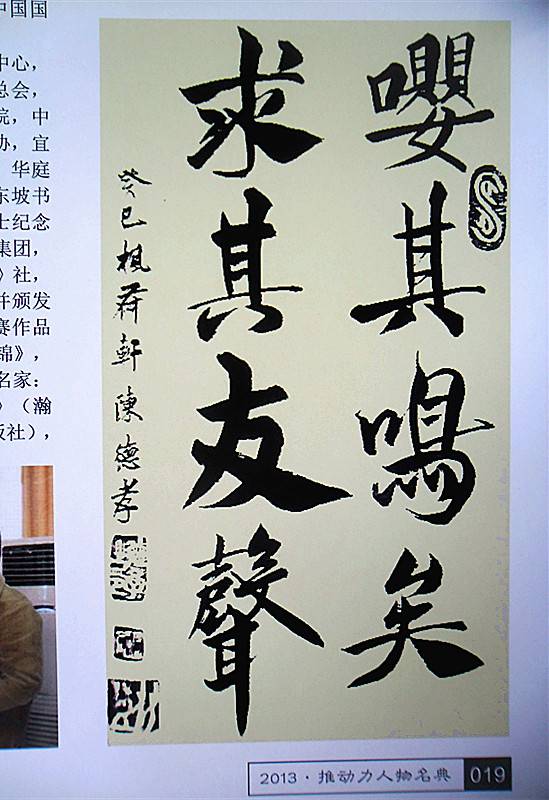 中国国
中心，
总会，
院，中
协，宜
华庭
东坡书
士纪念
集团，
》社，
并颁发
赛作品
锦》，
名家：
》（瀚
版社），
嚶其鳴矣
求其友聲
癸巳棋荷軒陳德孝
2013·推动力人物名典 019